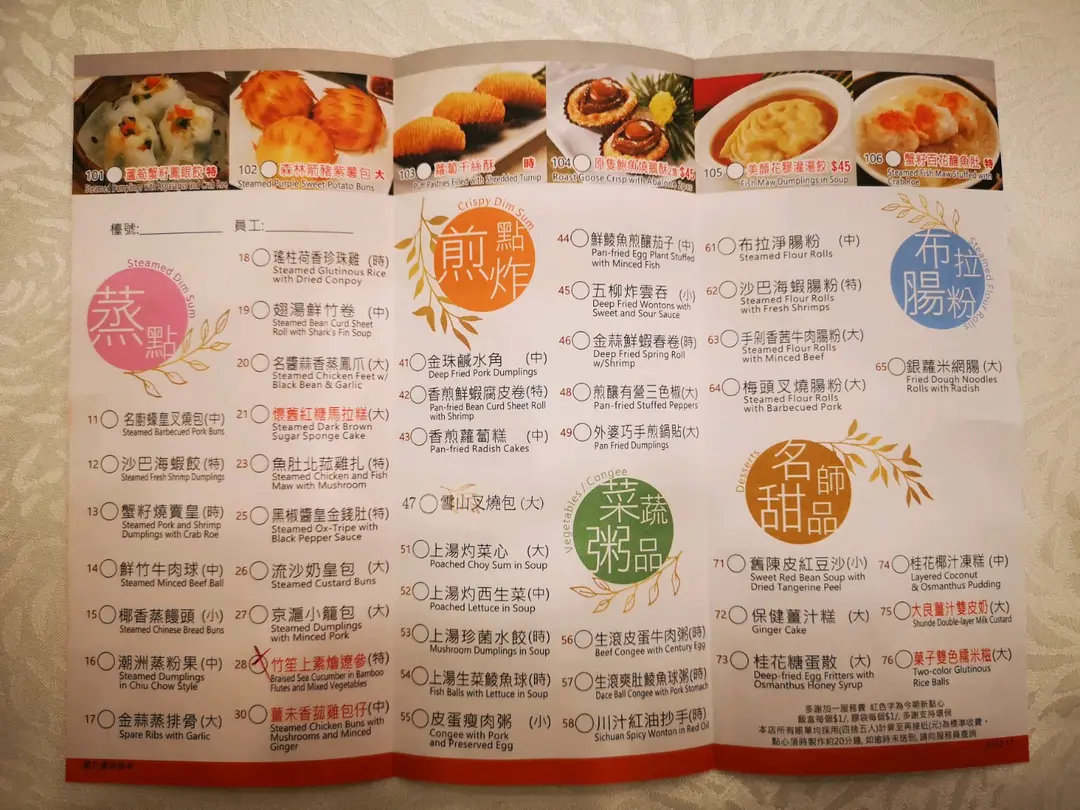 101 蘆筍蟹籽鳳眼餃 特
Steamed Dumplings with Asparagus and Crab Roe
102 森林箭豬紫薯包 大
Steamed Purple Sweet Potato Buns
103 蘿蔔千絲酥 時
Puff Pastries Filled with Shredded Turnip
104 原隻鮑魚燒鵝酥 $45
Roast Goose Crisp with Abalone 2pcs
105 美顏花膠灌湯餃 $45
Fish Maw Dumplings in Soup
106 蟹籽百花釀魚肚 特
Steamed Fish Maw Stuffed with
Crab Roe
檯號:
員工:
Steamed Dim Sum
蒸點
11 名廚蠔皇叉燒包(中)
Steamed Barbecued Pork Buns
12 沙巴海蝦餃(特)
Steamed Fresh Shrimp Dumplings
13 蟹籽燒賣皇(時)
Steamed Pork and Shrimp
Dumplings with Crab Roe
14 鮮竹牛肉球(中)
Steamed Minced Beef Ball
15 椰香蒸饅頭(小)
Steamed Chinese Bread Buns
16 潮洲蒸粉果(中)
Steamed Dumplings
in Chiu Chow Style
17 金蒜蒸排骨(大)
Spare Ribs with Garlic
18 瑤柱荷香珍珠雞(時)
Steamed Glutinous Rice
with Dried Conpoy
19 翅湯鮮竹卷(中)
Steamed Bean Curd Sheet
Roll with Shark's Fin Soup
20 名醬蒜香蒸鳳爪(大)
Steamed Chicken Feet w/
Black Bean & Garlic
21 懷舊紅糖馬拉糕(大)
Steamed Dark Brown
Sugar Sponge Cake
23 魚肚北菰雞扎(特)
Steamed Chicken and Fish
Maw with Mushroom
25 黑椒醬皇金錢肚(特)
Steamed Ox-Tripe with
Black Pepper Sauce
26 流沙奶皇包(大)
Steamed Custard Buns
27 京滬小籠包(大)
Steamed Dumplings
with Minced Pork
28 竹笙上素燴遼參(特)
Braised Sea Cucumber in Bamboo
Flutes and Mixed Vegetables
30 薑未香菰雞包仔(中)
Steamed Chicken Buns with
Mushrooms and Minced
Ginger
Crispy Dim Sum
煎點炸
41 金珠鹹水角(中)
Deep Fried Pork Dumplings
42 香煎鮮蝦腐皮卷(特)
Pan-fried Bean Curd Sheet Roll
with Shrimp
43 香煎蘿蔔糕(中)
Pan-fried Radish Cakes
47 雪山叉燒包(大)
44 鮮鯪魚煎釀茄子(中)
Pan-fried Egg Plant Stuffed
with Minced Fish
45 五柳炸雲吞(小)
Deep Fried Wontons with
Sweet and Sour Sauce
46 金蒜鮮蝦春卷(時)
Deep Fried Spring Roll
w/Shrimp
48 煎釀有營三色椒(大)
Pan-fried Stuffed Peppers
49 外婆巧手煎鍋貼(大)
Pan Fried Dumplings
Vegetables / Congee
菜蔬粥品
51 上湯灼菜心(大)
Poached Choy Sum in Soup
52 上湯灼西生菜(中)
Poached Lettuce in Soup
53 上湯珍菌水餃(時)
Mushroom Dumplings in Soup
54 上湯生菜鯪魚球(時)
Fish Balls with Lettuce in Soup
55 皮蛋瘦肉粥(小)
Congee with Pork
and Preserved Egg
56 生滾皮蛋牛肉粥(時)
Beef Congee with Century Egg
57 生滾爽肚鯪魚球粥(時)
Dace Ball Congee with Pork Stomach
58 川汁紅油抄手(時)
Sichuan Spicy Wonton in Red Oil
Steamed Flour Rolls
布拉腸粉
61 布拉淨腸粉(中)
Steamed Flour Rolls
62 沙巴海蝦腸粉(特)
Steamed Flour Rolls
with Fresh Shrimps
63 手剁香茜牛肉腸粉(大)
Steamed Flour Rolls
with Minced Beef
64 梅頭叉燒腸粉(大)
Steamed Flour Rolls
with Barbecued Pork
65 銀蘿米網腸(大)
Fried Dough Noodles
Rolls with Radish
Desserts
名師甜品
71 舊陳皮紅豆沙(小)
Sweet Red Bean Soup with
Dried Tangerine Peel
72 保健薑汁糕(大)
Ginger Cake
73 桂花糖蛋散(大)
Deep-fried Egg Fritters with
Osmanthus Honey Syrup
74 桂花椰汁凍糕(中)
Layered Coconut
& Osmanthus Pudding
75 大良薑汁雙皮奶(大)
Shunde Double-layer Milk Custard
76 菓子雙色糯米糍(大)
Two-color Glutinous
Rice Balls
多謝加一服務費 紅色字為今期新點心
飯盒每個$1/, 膠袋每個$1/, 多謝支持環保
本店所有賬單均採用(四捨五入)計算至再接近(元)為標準收費。
點心須時製作約20分鐘, 如逾時未送到, 請向服務員查詢